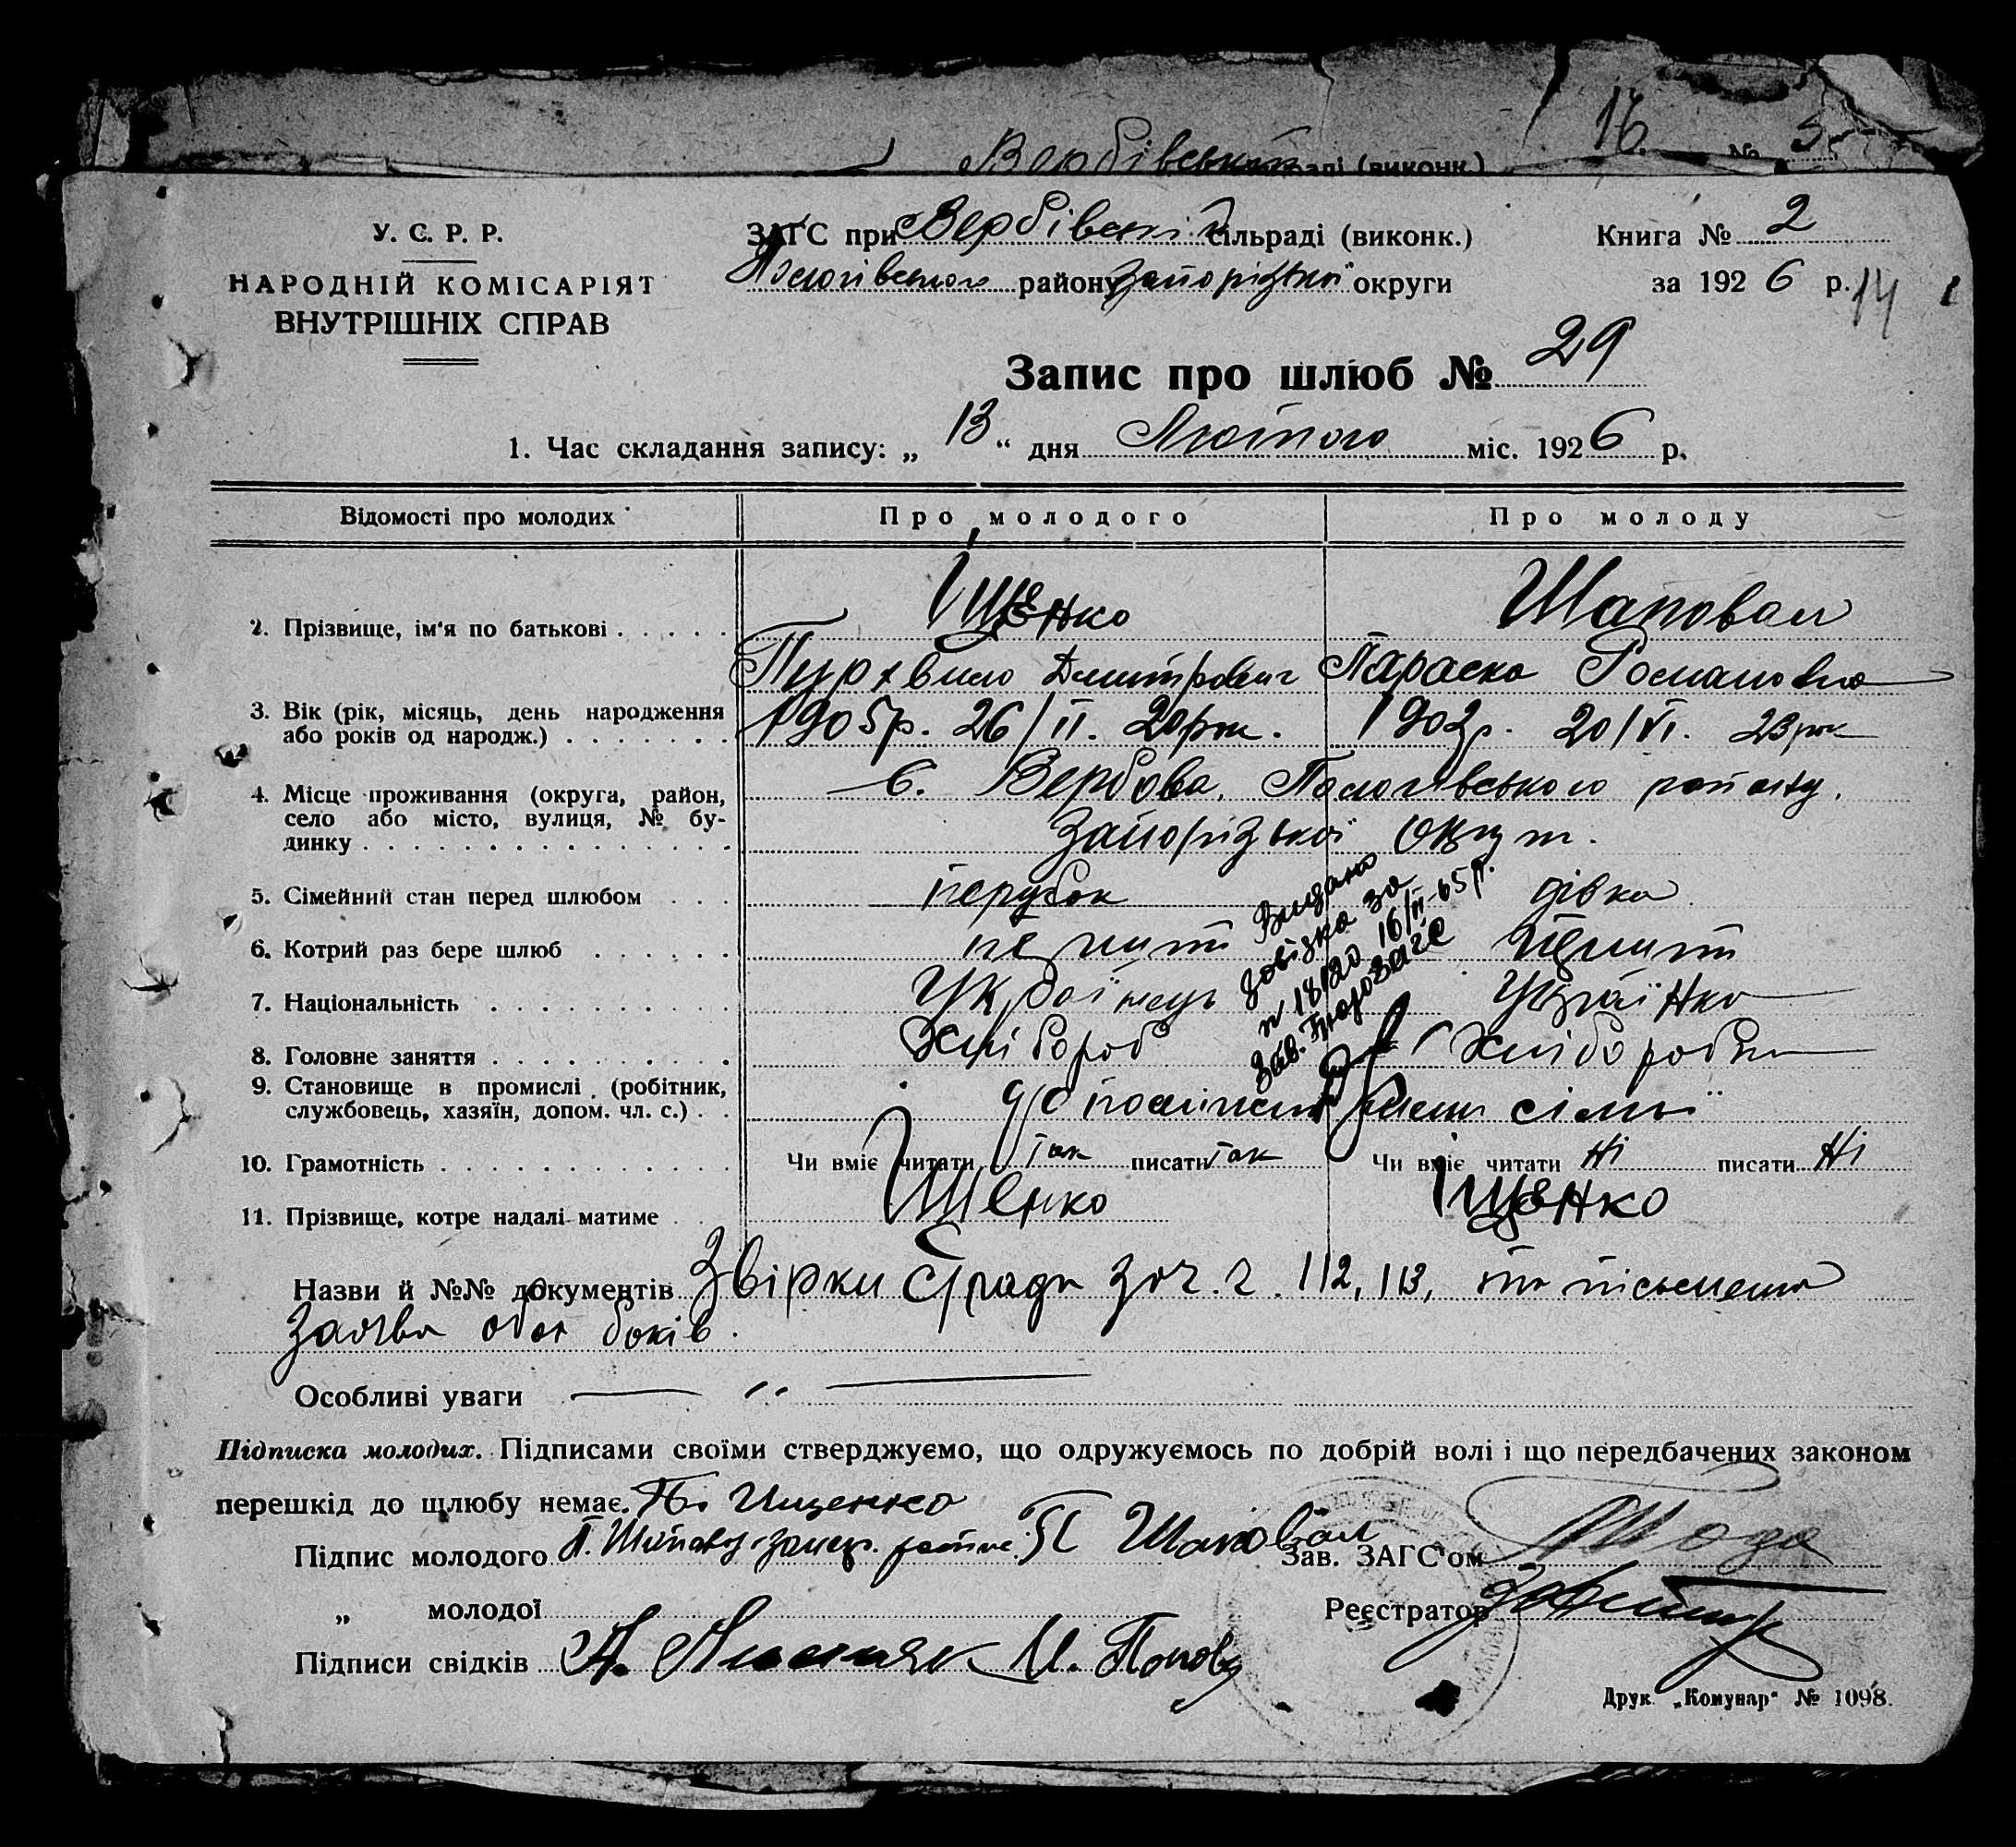 Вербівській раді (виконк.) 16. № 5
У. С. Р. Р.
НАРОДНІЙ КОМІСАРІЯТ
ВНУТРІШНІХ СПРАВ
ЗАГС при Вербівській сільраді (виконк.)
Пологівського району Запорізької округи
Книга № 2
за 1926 р. 14
Запис про шлюб № 29
1. Час складання запису: „ 13 “ дня Лютого міс. 1926 р.
Відомості про молодих Про молодого Про молоду
2. Прізвище, ім'я по батькові Іщенко Шаповал
Дмитрович Параска Романовна
3. Вік (рік, місяць, день народження 1905р. 26/II. 20рок. 1902р. 20/VI. 23рок
або років од народж.)
4. Місце проживання (округа, район, с. Вербова, Пологівського району.
село або місто, вулиця, № бу-
динку Запорізької Округи.
5. Сімейний стан перед шлюбом парубок дівка
6. Котрий раз бере шлюб первий первий
7. Національність Українець Українка
8. Головне заняття Хлібороб Хліборобка
9. Становище в промислі (робітник,
службовець, хазяїн, допом. чл. с.) член сімьї
Видано
довідка за
n 18/20 16/II-65р.
Зав.
10. Грамотність Чи вміє читати так писати так Чи вміє читати Ні писати Ні
11. Прізвище, котре надалі матиме Іщенко Іщенко
Назви й №№ документів Звірки С/ради за ч. ч. 112, 113, та письмена
Заява обох боків.
Особливі уваги — „ —
Підписка молодих. Підписами своїми стверджуємо, що одружуємось по добрій волі і що передбачених законом
перешкід до шлюбу немає. Ищенко
Підпис молодого П. Шаповал Зав. ЗАГС'ом
„ молодої Реєстратор
Підписи свідків А. И. Попов
Друк. „Комунар“ № 1098.